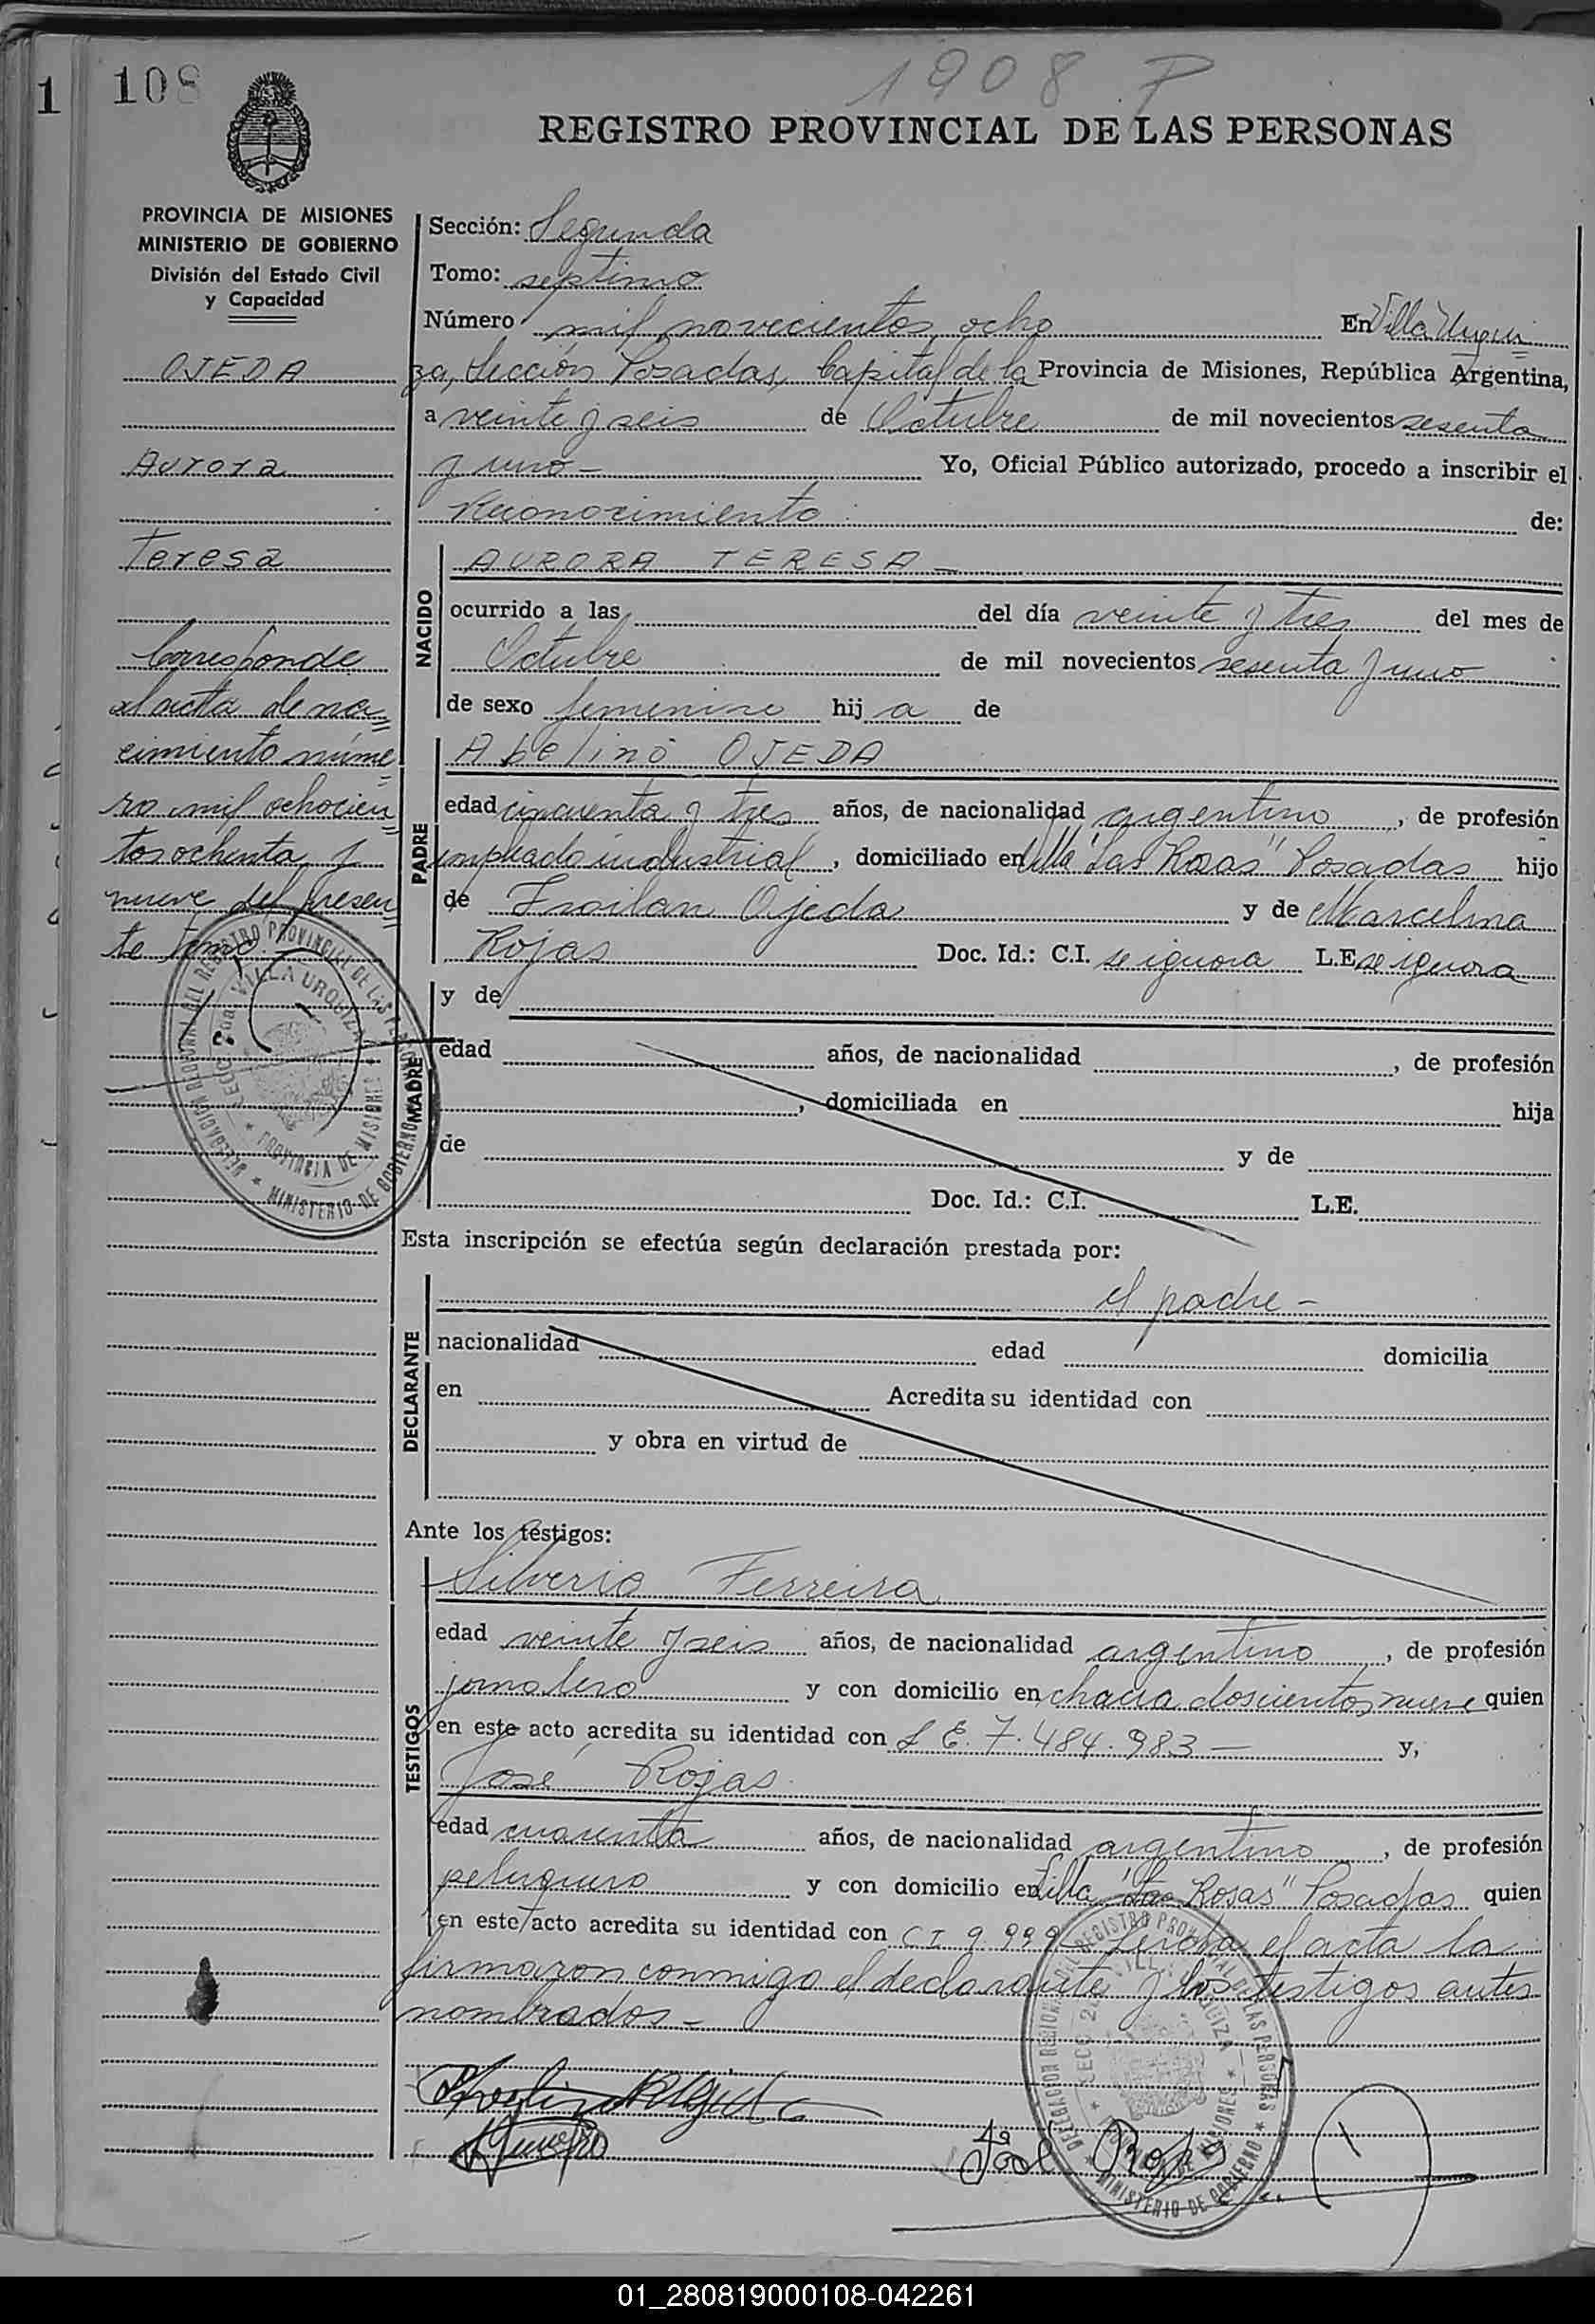 1908 P
1
108
REGISTRO PROVINCIAL DE LAS PERSONAS
PROVINCIA DE MISIONES
MINISTERIO DE GOBIERNO
División del Estado Civil
y Capacidad
OJEDA
Aurora
Teresa
Corresponde
al acta de na=
cimiento núme=
ro mil ochocien=
tos ochenta y
nueve del presen=
te tomo
Sección: Segunda
Tomo: septimo
Número mil novecientos ocho En Villa Urqui=
za, Sección Posadas, Capital de la Provincia de Misiones, República Argentina,
a veinte y seis de Octubre de mil novecientos sesenta
y uno - Yo, Oficial Público autorizado, procedo a inscribir el
Reconocimiento de:
NACIDO
AURORA TERESA -
ocurrido a las del día veinte y tres del mes de
Octubre de mil novecientos sesenta y uno
de sexo femenino hij a de
PADRE
Abelino OJEDA
edad cincuenta y tres años, de nacionalidad argentino, de profesión
empleado industrial, domiciliado en Villa "Las Rosas" Posadas hijo
de Froilan Ojeda y de Marcelina
Rojas Doc. Id.: C.I. se ignora L.E. se ignora
MADRE
y de
edad años, de nacionalidad , de profesión
, domiciliada en hija
de y de
Doc. Id.: C.I. L.E.
Esta inscripción se efectúa según declaración prestada por:
DECLARANTE
el padre -
nacionalidad edad domicilia
en Acredita su identidad con
y obra en virtud de
Ante los testigos:
TESTIGOS
Silverio Ferreira
edad veinte y seis años, de nacionalidad argentino, de profesión
jornalero y con domicilio en chacra doscientos nueve quien
en este acto acredita su identidad con L E. 7.484.983 - y,
José Rojas
edad cuarenta años, de nacionalidad argentino, de profesión
peluquero y con domicilio en Villa "Las Rosas" Posadas quien
en este acto acredita su identidad con CI 9.999 Leida el acta la
firmaron conmigo el declarante y los testigos antes
nombrados -
José Rojas
DELEGACION REGIONAL DEL REGISTRO PROVINCIAL DE LAS PERSONAS
SECC 2da VILLA URQUIZA
PROVINCIA DE MISIONES
MINISTERIO DE GOBIERNO
01_280819000108-042261